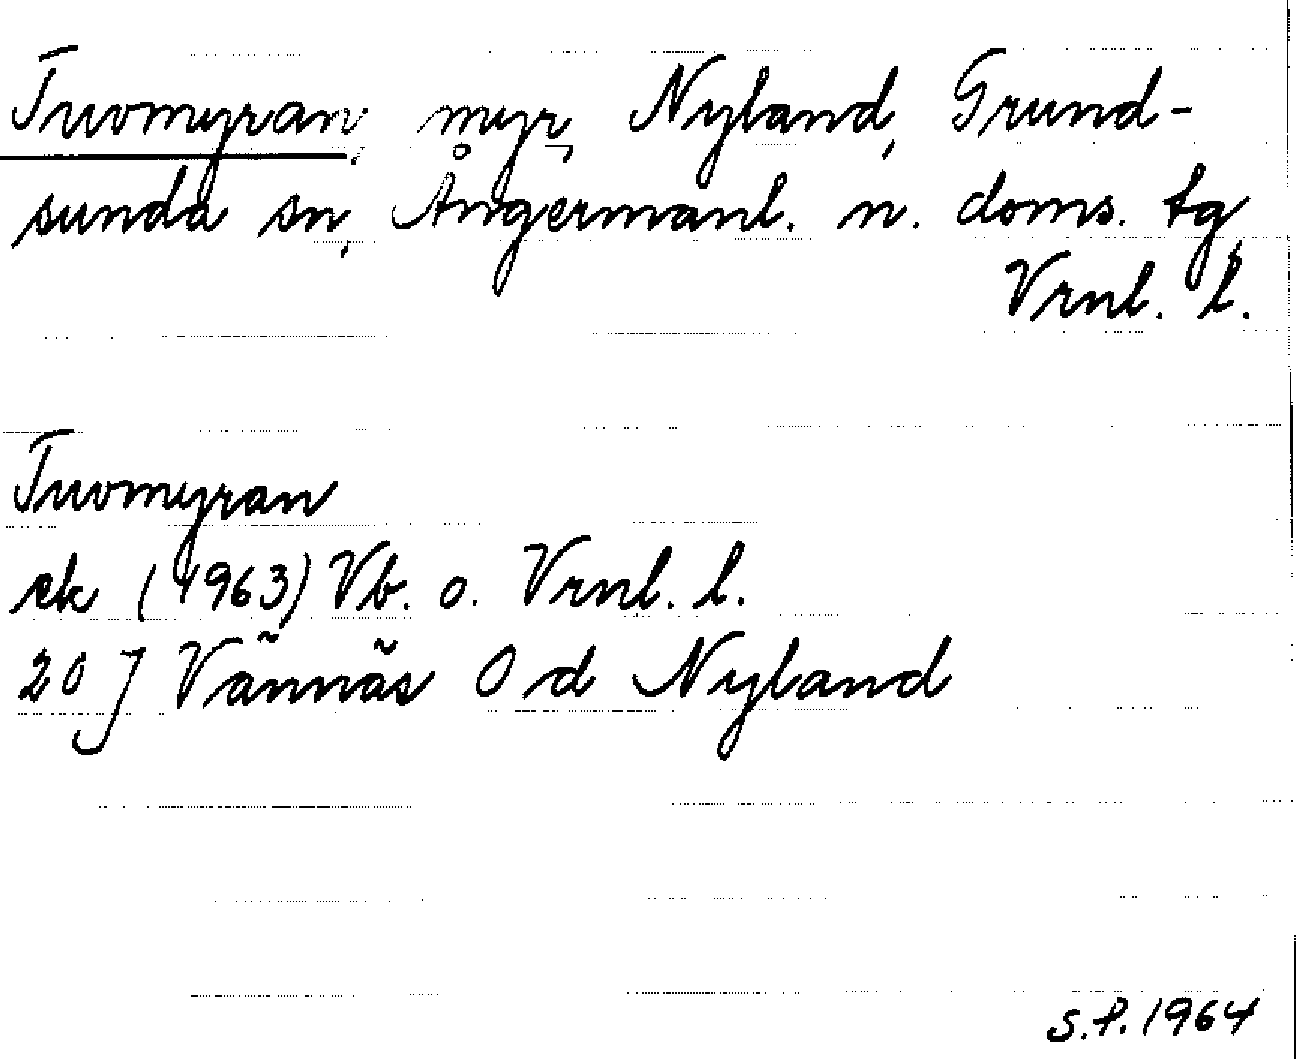 Tuvomyran, myr, Nyland, Grund-
sunda sn, Ångermanl. n. doms. tg,
Vrnl. l.
Tuvomyran
ek (1963) Vb. o. Vrnl. l.
20 J Vännäs 0 d Nyland
S.P. 1964